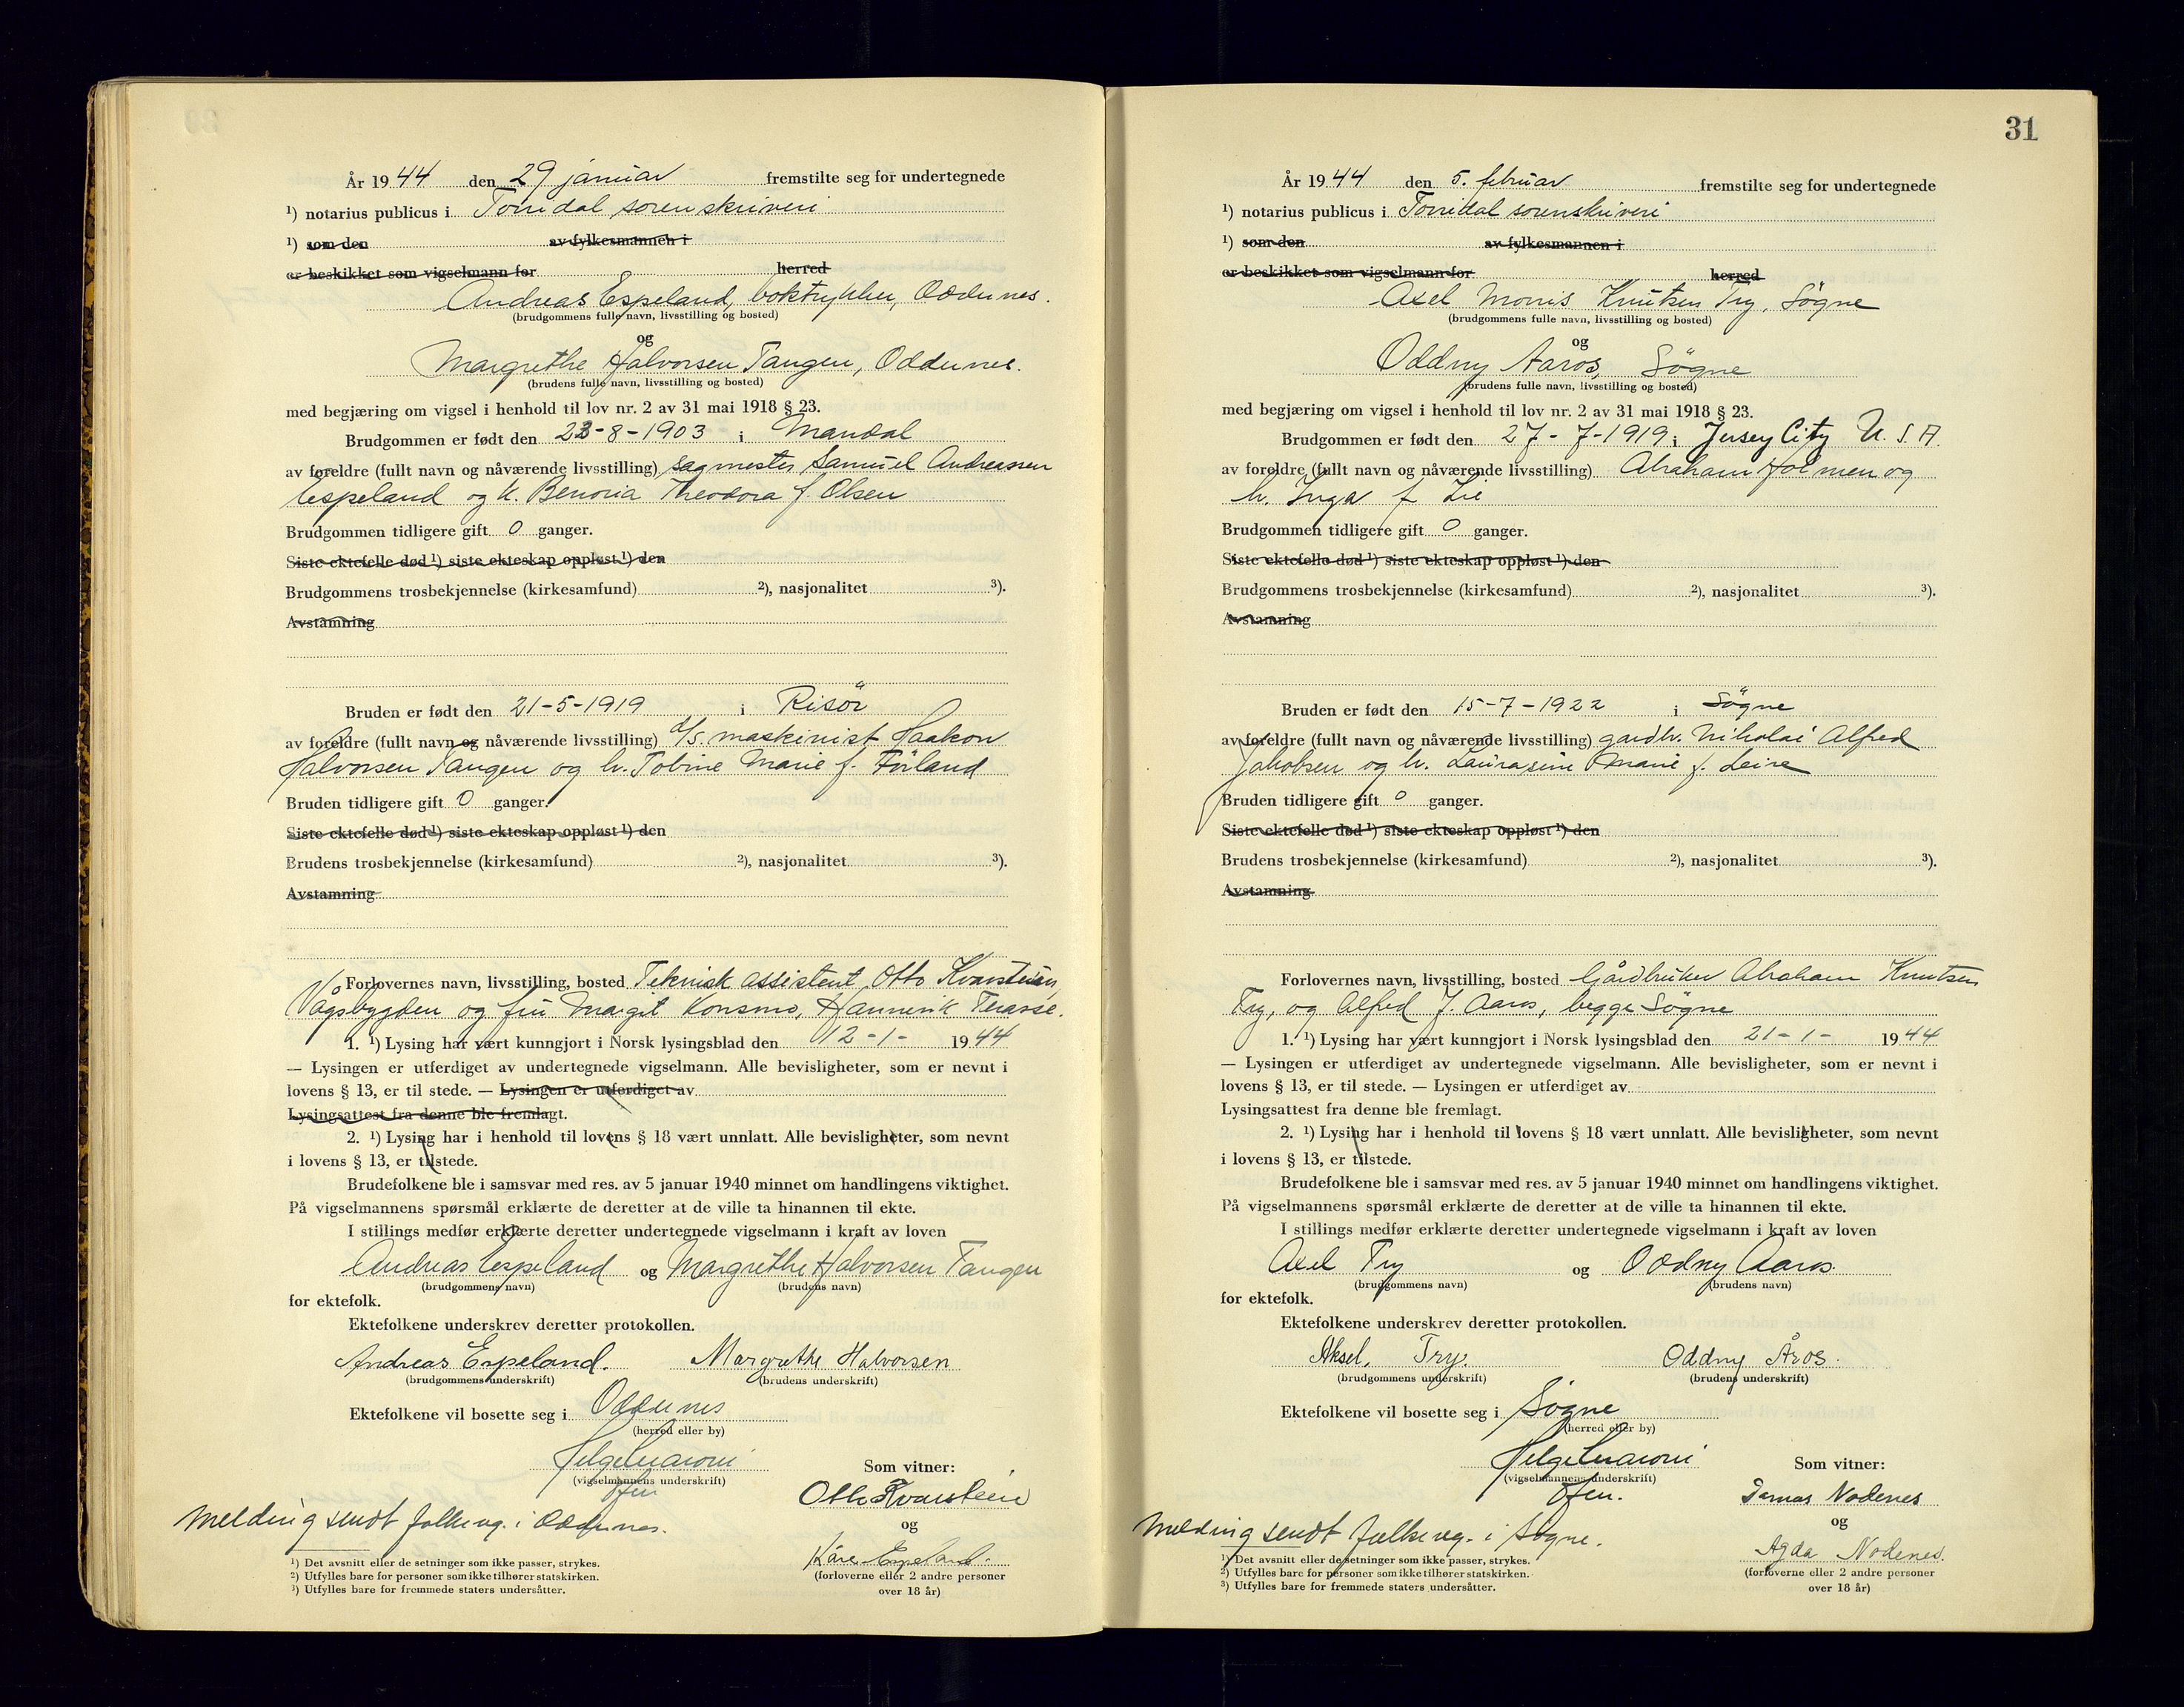 År 1944 den 29 januar fremstilte seg for undertegnede
¹) notarius publicus i Torridal sorenskriveri
¹) som den av fylkesmannen i
er beskikket som vigselmann for herred
Andreas Espeland, boktrykker, Oddernes.
(brudgommens fulle navn, livsstilling og bosted)
og
Margrethe Halvorsen Tangen, Oddernes.
(brudens fulle navn, livsstilling og bosted)
med begjæring om vigsel i henhold til lov nr. 2 av 31 mai 1918 § 23.
Brudgommen er født den 23-8-1903 i Mandal
av foreldre (fullt navn og nåværende livsstilling) sagmester Samuel Andreassen
Espeland og h. Benoria Theodora f. Olsen
Brudgommen tidligere gift 0 ganger.
Siste ektefelle død ¹) siste ekteskap oppløst ¹) den
Brudgommens trosbekjennelse (kirkesamfund) ²), nasjonalitet ³).
Avstamning
Bruden er født den 21-5-1919 i Risör
av foreldre (fullt navn og nåværende livsstilling) d/s. maskinist Haakon
Halvorsen Tangen og h. Tobine Marie f. Förland
Bruden tidligere gift 0 ganger.
Siste ektefelle død ¹) siste ekteskap oppløst ¹) den
Brudens trosbekjennelse (kirkesamfund) ²), nasjonalitet ³).
Avstamning
Forlovernes navn, livsstilling, bosted Teknisk assistent Otto Kvarstein,
Vågsbygden og fru Margit Konsmo, Hannevik Terasse.
1. ¹) Lysing har vært kunngjort i Norsk lysingsblad den 12-1- 1944
— Lysingen er utferdiget av undertegnede vigselmann. Alle bevisligheter, som er nevnt i
lovens § 13, er til stede. — Lysingen er utferdiget av
Lysingsattest fra denne ble fremlagt.
2. ¹) Lysing har i henhold til lovens § 18 vært unnlatt. Alle bevisligheter, som nevnt
i lovens § 13, er tilstede.
Brudefolkene ble i samsvar med res. av 5 januar 1940 minnet om handlingens viktighet.
På vigselmannens spørsmål erklærte de deretter at de ville ta hinannen til ekte.
I stillings medfør erklærte deretter undertegnede vigselmann i kraft av loven
Andreas Espeland og Margrethe Halvorsen Tangen
(brudgommens navn) (brudens navn)
for ektefolk.
Ektefolkene underskrev deretter protokollen.
Andreas Espeland. Margrethe Halvorsen
(brudgommens underskrift) (brudens underskrift)
Ektefolkene vil bosette seg i Oddernes
(herred eller by)
Helge Maroni
(vigselmannens underskrift)
Som vitner:
Otto Kvarstein
Melding sendt folkereg. i Oddernes.
og
Kåre Espeland.
(forloverne eller 2 andre personer
over 18 år)
¹) Det avsnitt eller de setninger som ikke passer, strykes.
²) Utfylles bare for personer som ikke tilhører statskirken.
³) Utfylles bare for fremmede staters undersåtter.
31
År 1944 den 5. februar fremstilte seg for undertegnede
¹) notarius publicus i Torridal sorenskriveri
¹) som den av fylkesmannen i
er beskikket som vigselmann for herred
Axel Morris Knutsen Try, Søgne
(brudgommens fulle navn, livsstilling og bosted)
og
Oddny Aaros, Søgne
(brudens fulle navn, livsstilling og bosted)
med begjæring om vigsel i henhold til lov nr. 2 av 31 mai 1918 § 23.
Brudgommen er født den 27-7-1919 i Jersey City U.S.A.
av foreldre (fullt navn og nåværende livsstilling) Abraham Holmen og
h. Inga f. Lie
Brudgommen tidligere gift 0 ganger.
Siste ektefelle død ¹) siste ekteskap oppløst ¹) den
Brudgommens trosbekjennelse (kirkesamfund) ²), nasjonalitet ³).
Avstamning
Bruden er født den 15-7-1922 i Søgne
av foreldre (fullt navn og nåværende livsstilling) gardbr. Nikolai Alfred
Jakobsen og h. Laurasine Marie f. Leire
Bruden tidligere gift 0 ganger.
Siste ektefelle død ¹) siste ekteskap oppløst ¹) den
Brudens trosbekjennelse (kirkesamfund) ²), nasjonalitet ³).
Avstamning
Forlovernes navn, livsstilling, bosted Gårdbruker Abraham Knutsen
Try, og Alfred J. Aaros, begge Søgne
1. ¹) Lysing har vært kunngjort i Norsk lysingsblad den 21-1- 1944
— Lysingen er utferdiget av undertegnede vigselmann. Alle bevisligheter, som er nevnt i
lovens § 13, er til stede. — Lysingen er utferdiget av
Lysingsattest fra denne ble fremlagt.
2. ¹) Lysing har i henhold til lovens § 18 vært unnlatt. Alle bevisligheter, som nevnt
i lovens § 13, er tilstede.
Brudefolkene ble i samsvar med res. av 5 januar 1940 minnet om handlingens viktighet.
På vigselmannens spørsmål erklærte de deretter at de ville ta hinannen til ekte.
I stillings medfør erklærte deretter undertegnede vigselmann i kraft av loven
Axel Try og Oddny Aaros.
(brudgommens navn) (brudens navn)
for ektefolk.
Ektefolkene underskrev deretter protokollen.
Aksel. Try. Oddny Åros.
(brudgommens underskrift) (brudens underskrift)
Ektefolkene vil bosette seg i Søgne
(herred eller by)
Helge Maroni
(vigselmannens underskrift)
Som vitner:
Nodenes
Melding sendt folkereg. i Søgne.
og
Agda Nodenes.
(forloverne eller 2 andre personer
over 18 år)
¹) Det avsnitt eller de setninger som ikke passer, strykes.
²) Utfylles bare for personer som ikke tilhører statskirken.
³) Utfylles bare for fremmede staters undersåtter.